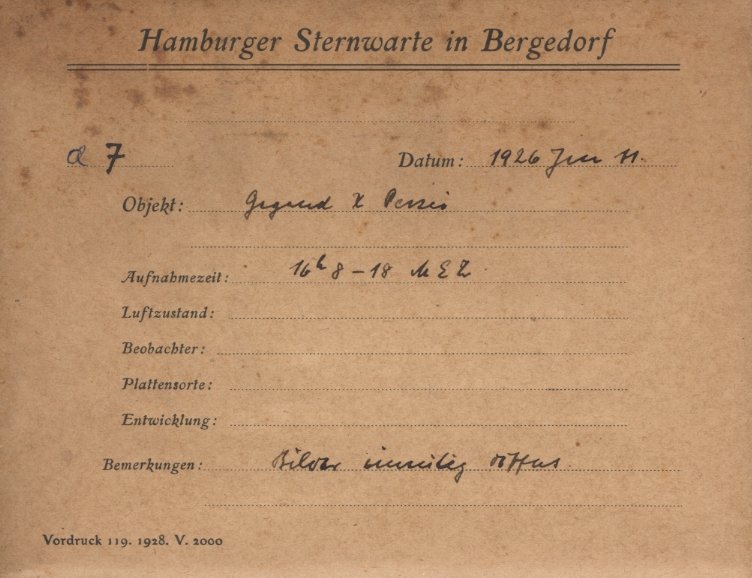 Hamburger Sternwarte in Bergedorf
a 7
Datum: 1926 Jan 11.
Objekt: Gegend χ Persei
Aufnahmezeit: 16h 8-18 MEZ
Luftzustand:
Beobachter:
Plattensorte:
Entwicklung:
Bemerkungen: Bilder einseitig
Vordruck 119. 1928. V. 2000